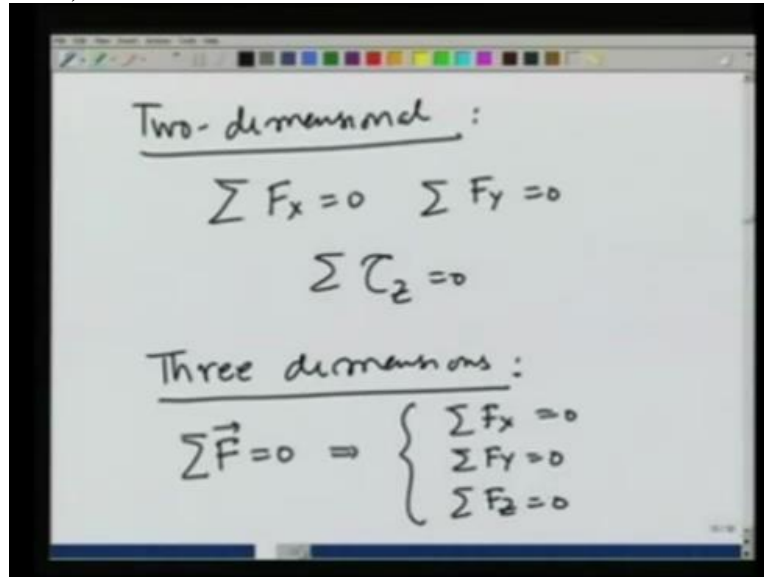 Two-dimensional :
∑ Fx = 0 ∑ Fy = 0
∑ τz = 0
Three dimensions :
∑ F⃗ = 0 ⇒ { ∑ Fx = 0
∑ Fy = 0
∑ Fz = 0